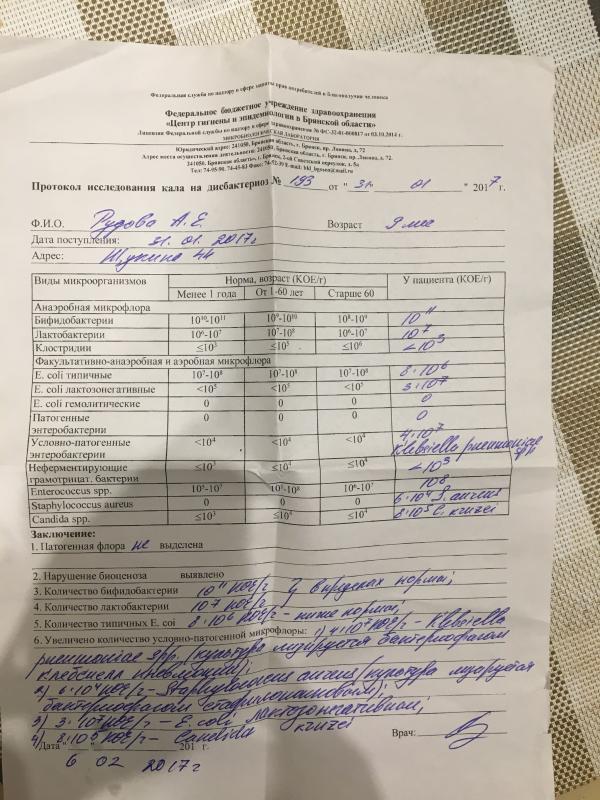 Федеральная служба по надзору в сфере защиты прав потребителей и благополучия человека
Федеральное бюджетное учреждение здравоохранения
«Центр гигиены и эпидемиологии в Брянской области»
Лицензия Федеральной службы по надзору в сфере здравоохранения № ФС-32-01-000817 от 03.10.2014 г.
МИКРОБИОЛОГИЧЕСКАЯ ЛАБОРАТОРИЯ
Юридический адрес: 241050, Брянская область, г. Брянск, пр. Ленина, д. 72
Адрес места осуществления деятельности: 241050, Брянская область, г. Брянск, пр. Ленина, д. 72,
241050, Брянская область, г. Брянск, 2-ой Советский переулок, д. 5а
Тел: 74-05-90, 74-45-83 Факс: 74-52-39 E-mail:
Протокол исследования кала на дисбактериоз № 193 от "31" 01 2017 г.
Ф.И.О. Рудова А.Е. Возраст 9 мес
Дата поступления: 31. 01. 2017г
Адрес: Щукина 44
Виды микроорганизмов Норма, возраст (КОЕ/г) У пациента (КОЕ/г)
Менее 1 года От 1-60 лет Старше 60
Анаэробная микрофлора
Бифидобактерии 10¹⁰-10¹¹ 10⁹-10¹⁰ 10⁸-10⁹ 10¹¹
Лактобактерии 10⁶-10⁷ 10⁷-10⁸ 10⁶-10⁷ 10⁷
Клостридии ≤10³ ≤10⁵ ≤10⁶ <10³
Факультативно-анаэробная и аэробная микрофлора
E. coli типичные 10⁷-10⁸ 10⁷-10⁸ 10⁷-10⁸ 8·10⁶
E. coli лактозонегативные <10⁵ <10⁵ <10⁵ 3·10⁷
E. coli гемолитические 0 0 0 0
Патогенные энтеробактерии 0 0 0 0
Условно-патогенные энтеробактерии <10⁴ <10⁴ <10⁴ 4·10⁷ Klebsiella pneumoniae spp
Неферментирующие грамотрицат. бактерии ≤10³ ≤10⁴ ≤10⁴ <10³
Enterococcus spp. 10⁵-10⁷ 10⁵-10⁸ 10⁶-10⁷ 10⁸
Staphylococcus aureus 0 0 0 6·10⁴ S. aureus
Candida spp. ≤10³ ≤10⁴ ≤10⁴ 8·10⁵ C. kruzei
Заключение:
1. Патогенная флора не выделена
2. Нарушение биоценоза выявлено
3. Количество бифидобактерии 10¹¹ КОЕ/г } в пределах нормы;
4. Количество лактобактерии 10⁷ КОЕ/г
5. Количество типичных E. coi 8·10⁶ КОЕ/г - ниже нормы;
6. Увеличено количество условно-патогенной микрофлоры: 1) 4·10⁷ КОЕ/г - Klebsiella
pneumoniae spp. (культура лизируется бактериофагом
клебсиелл );
2) 6·10⁴ КОЕ/г - Staphylococcus aureus (культура лизируется
бактериофагом стафилококковым);
3) 3·10⁷ КОЕ/г - E. coli лактозонегативной;
4) 8·10⁵ КОЕ/г - Candida kruzei
Дата " " 201 г. Врач:
6 02 2017г